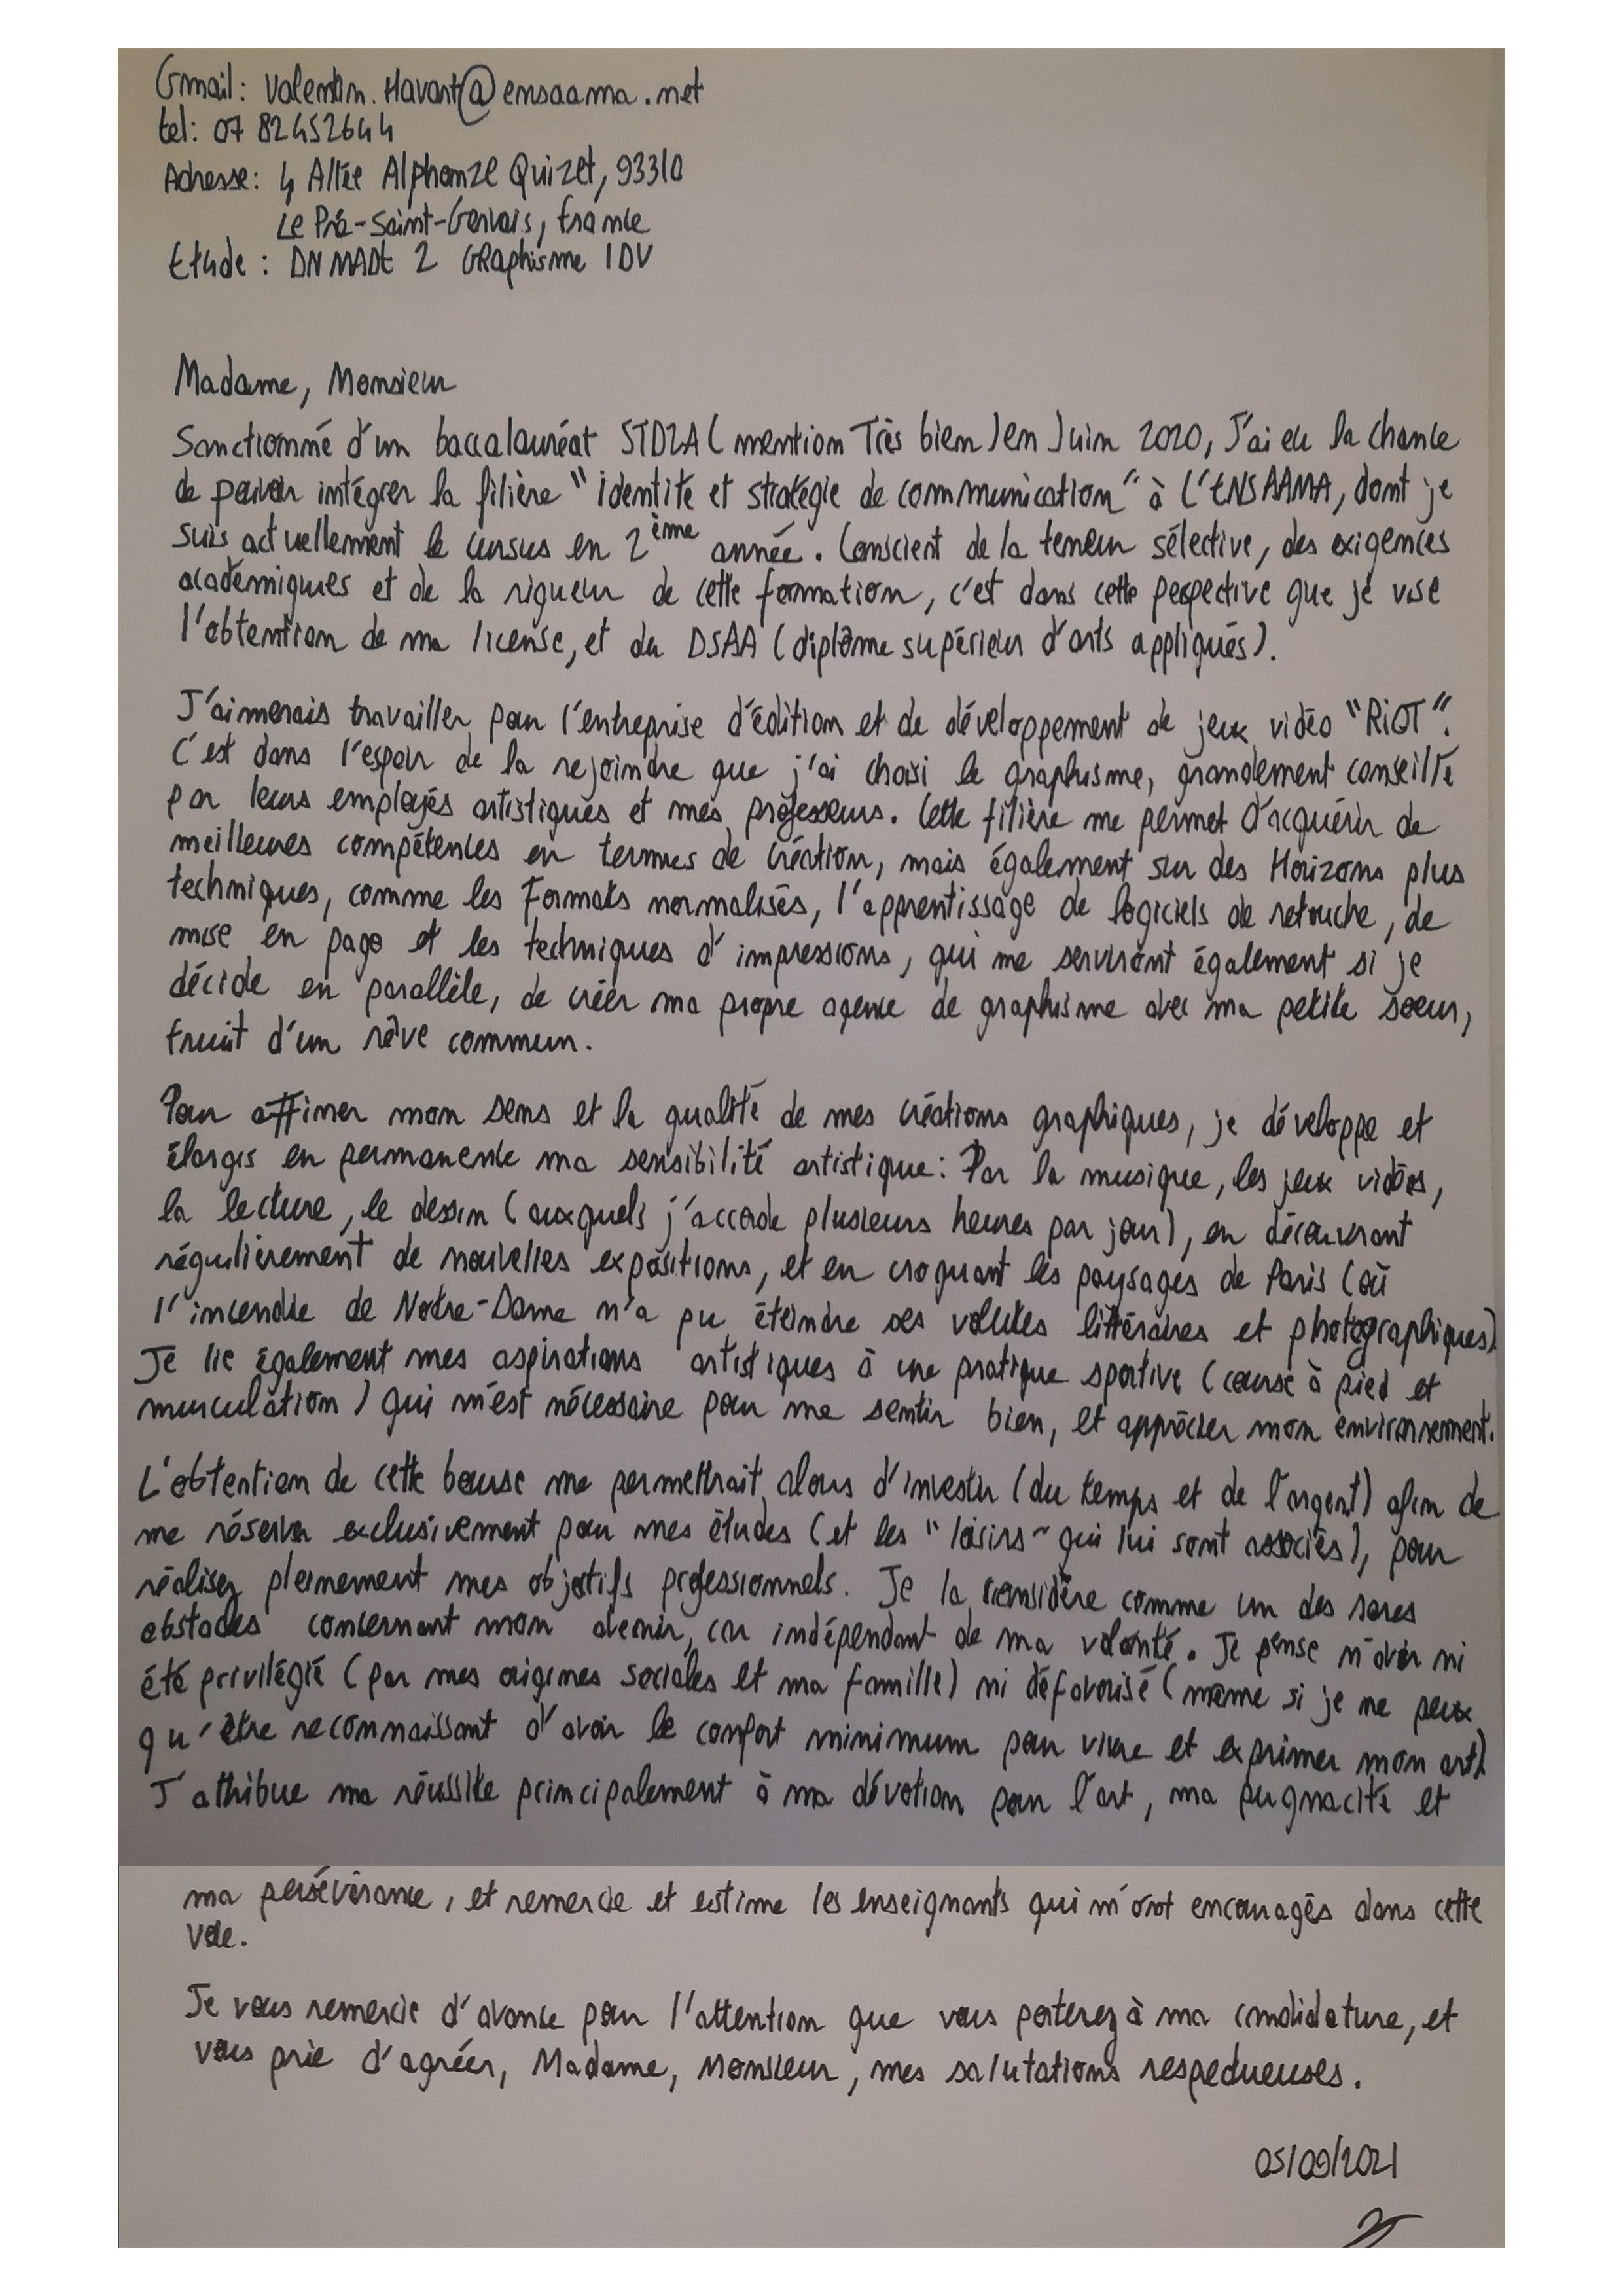 Gmail: Valentin.Havant@ensaama.net
tel: 07 82452644
Adresse: 4 Allée Alphonze Quizet, 93310
Le Pré-Saint-Gervais, france
Etude : DN MADE 2 GRaphisme IDV
Madame, Monsieur
Sanctionné d'un baccalauréat STD2A ( mention Très bien ) en Juin 2020, J'ai eu la chance
de pouvoir intégrer la filière "identité et stratégie de communication" à L'ENSAAMA, dont je
suis actuellement le cursus en 2ème année. Conscient de la teneur sélective, des exigences
académiques et de la rigueur de cette formation, c'est dans cette perspective que je vise
l'obtention de ma license, et du DSAA (diplôme supérieur d'arts appliqués).
J'aimerais travailler pour l'entreprise d'édition et de développement de jeux vidéo "RiOT".
C'est dans l'espoir de la rejoindre que j'ai choisi le graphisme, grandement conseillé
par leurs employés artistiques et mes professeurs. Cette filière me permet d'acquérir de
meilleures compétences en termes de création, mais également sur des Horizons plus
techniques, comme les Formats normalisés, l'apprentissage de logiciels de retouche, de
mise en page et les techniques d'impressions, qui me serviront également si je
décide en parallèle, de créer ma propre agence de graphisme avec ma petite soeur,
fruit d'un rêve commun.
Pour affiner mon sens et la qualité de mes créations graphiques, je développe et
élargis en permanence ma sensibilité artistique: Par la musique, les jeux vidéos,
la lecture, le dessin (auxquels j'accorde plusieurs heures par jour), en découvrant
régulièrement de nouvelles expositions, et en croquant les paysages de Paris (où
l'incendie de Notre-Dame n'a pu éteindre ses volutes littéraires et photographiques)
Je lie également mes aspirations artistiques à une pratique sportive (course à pied et
musculation) qui m'est nécessaire pour me sentir bien, et apprécier mon environnement.
L'obtention de cette bourse me permettrait alors d'investir (du temps et de l'argent) afin de
me réserver exclusivement pour mes études (et les "loisirs" qui lui sont associés), pour
réaliser pleinement mes objectifs professionnels. Je la considère comme un des rares
obstacles concernant mon avenir, car indépendant de ma volonté. Je pense n'avoir ni
été privilégié (par mes origines sociales et ma famille) ni défavorisé (même si je ne peux
qu'être reconnaissant d'avoir le confort minimum pour vivre et exprimer mon art)
J'attribue ma réussite principalement à ma dévotion pour l'art, ma pugnacité et
ma persévérance, et remercie et estime les enseignants qui m'ont encouragés dans cette
voie.
Je vous remercie d'avance pour l'attention que vous porterez à ma candidature, et
vous prie d'agréer, Madame, Monsieur, mes salutations respectueuses.
05/09/2021